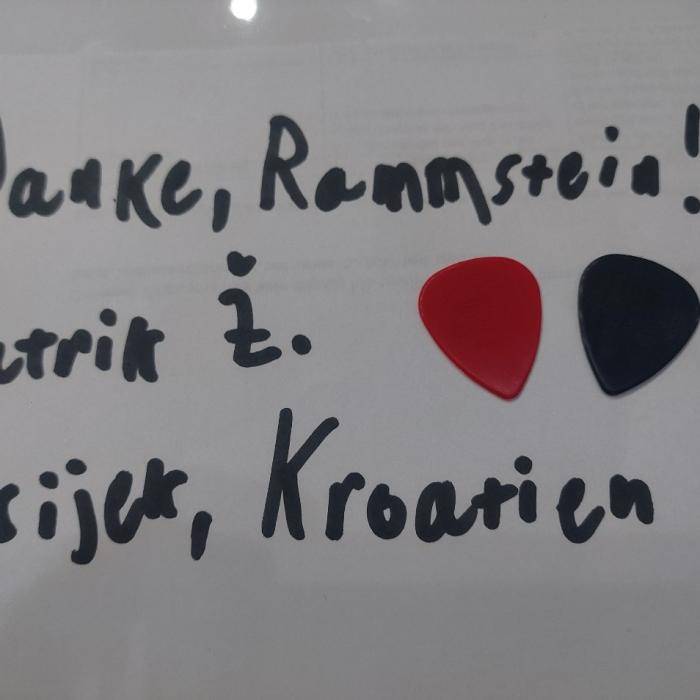 Danke, Rammstein!
atrik Ž.
sijek, Kroatien